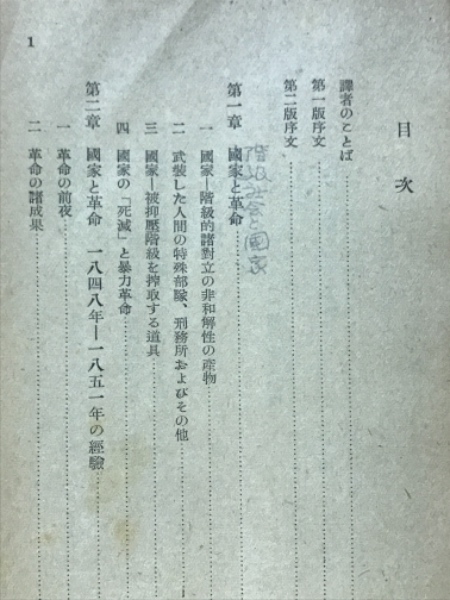 目次
譯者のことば
第一版序文
第二版序文
階級社会と國家
第一章 國家と革命
一 國家―階級的諸對立の非和解性の産物
二 武裝した人間の特殊部隊、刑務所およびその他
三 國家―被抑壓階級を搾取する道具
四 國家の「死滅」と暴力革命
第二章 國家と革命 一八四八年―一八五一年の經驗
一 革命の前夜
二 革命の諸成果
1